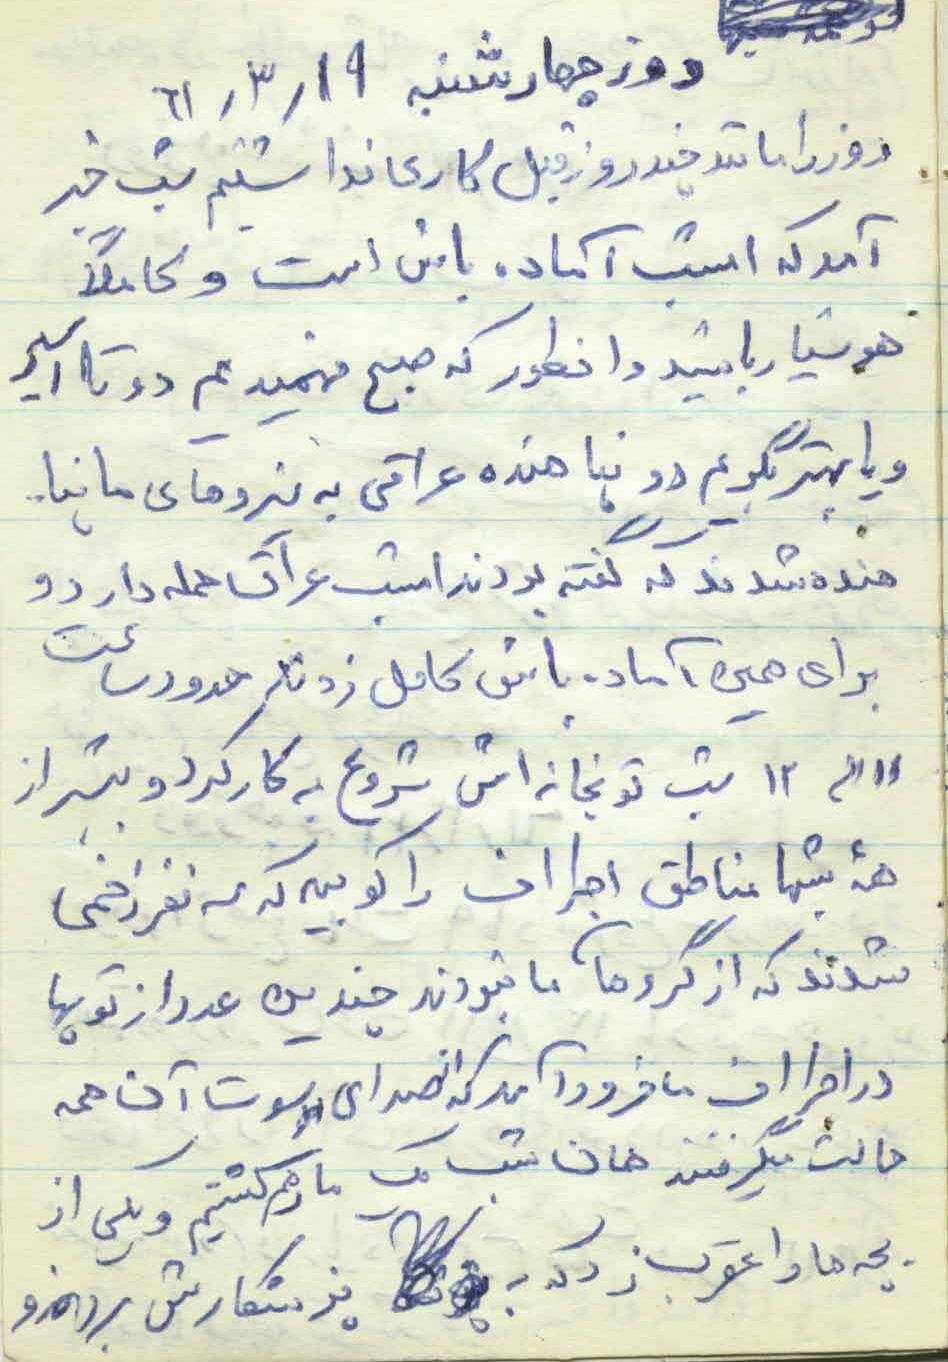 روز چهارشنبه ۶۱/۳/۱۹
روز را مانند چند روز قبل کاری نداشتیم شب خبر
آمد که امشب آماده باش است و کاملاً
هوشیار باشید و اینطور که صبح فهمیدیم دو تا اسیر
و یا بهتر بگویم دو پناهنده عراقی به نیروهای ما پنا..
هنده شدند که گفته بودند امشب عراق حمله دارد و
برای همین آماده باش کامل زدند حدود ساعت
۱۱ الی ۱۲ شب توپخانه اش شروع به کار کرد و بیشتر از
همۀ شبها مناطق اطراف را کوبید که سه نفر زخمی
شدند که از گروهان ما نبودند چندین عدد از توپها
در اطراف ما فرود آمد که از صدای سوت آن همه
حالت میگرفتند همان شب یک مار هم کشتیم و یکی از
بچه ها را عقرب زد که به پزشکیارش بردند و